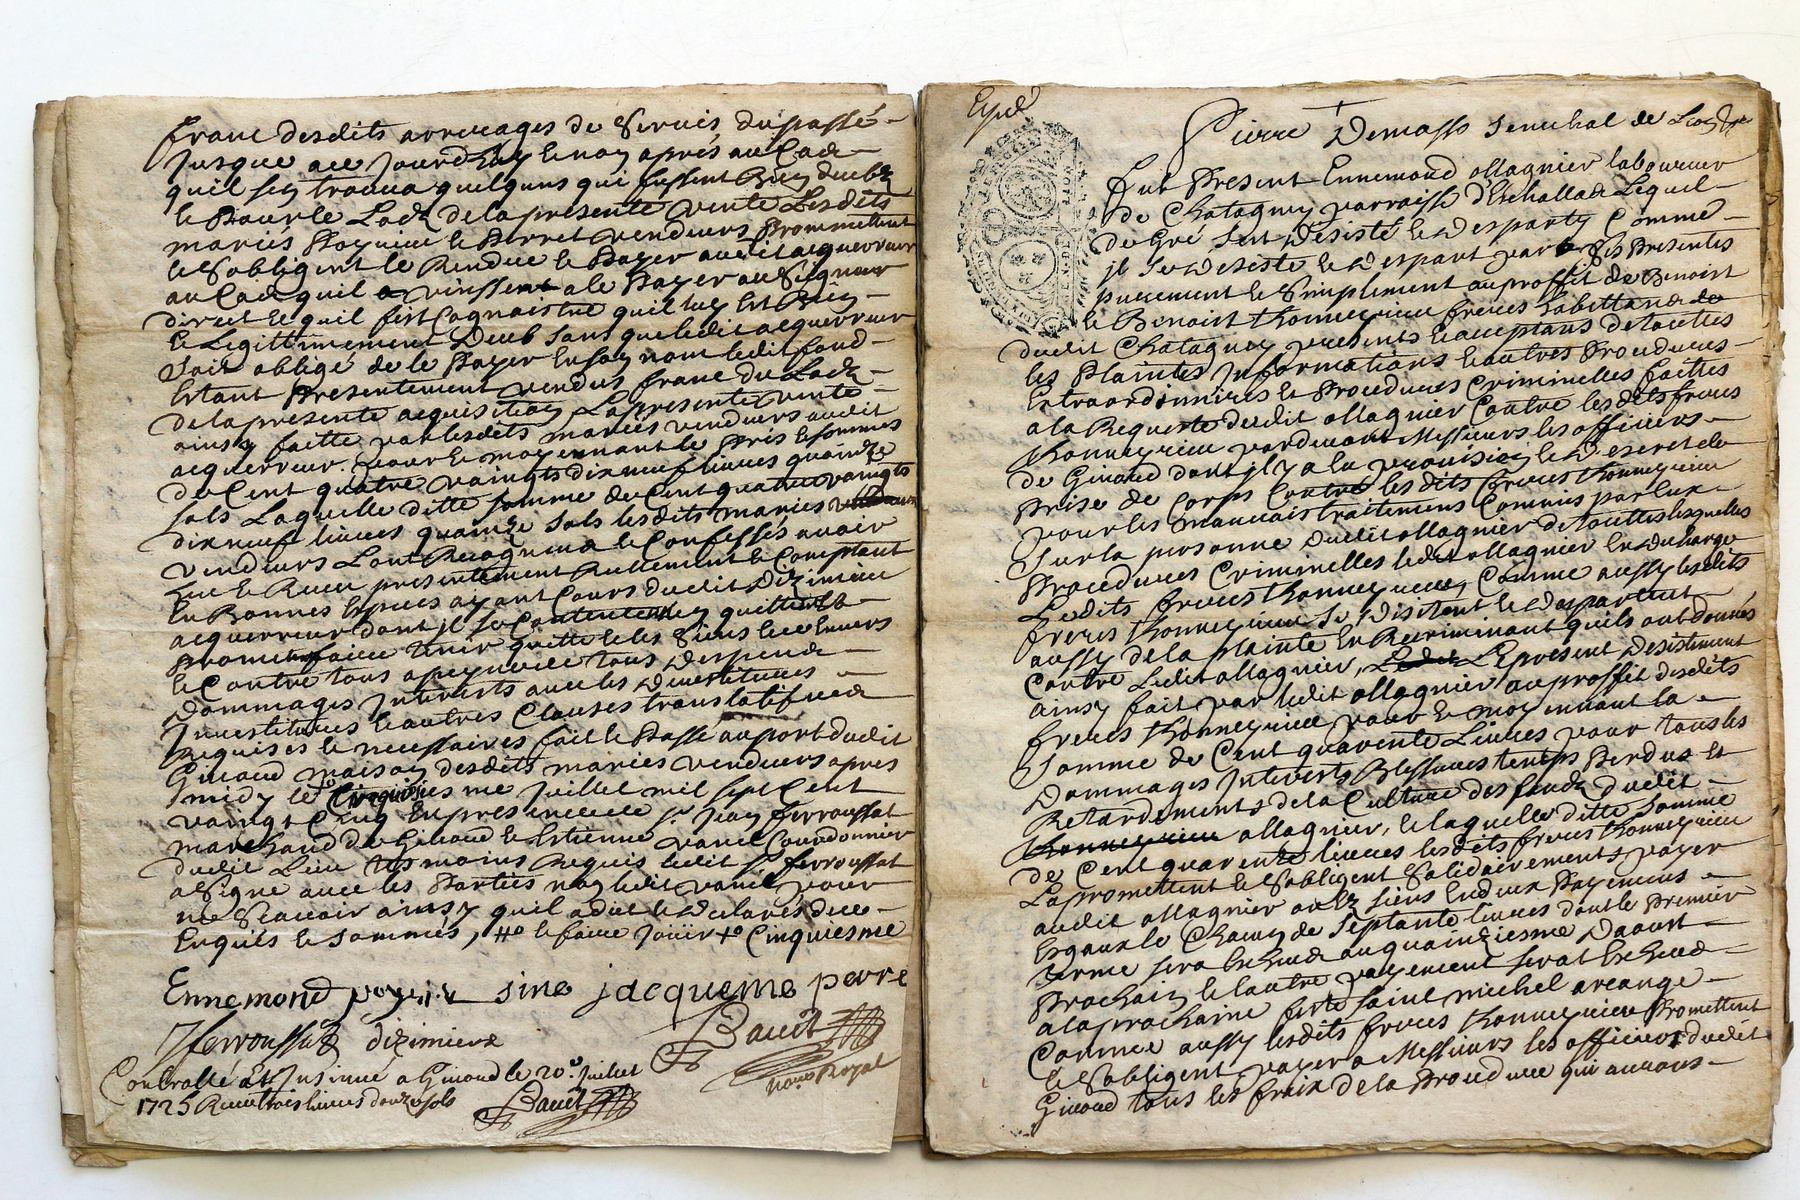 franc desdits arrerages de servis du passé
jusque a ce jourdhuy le non aprés au Cad
quil sen trouva quelques qui fussent
le Payer le Lods de la presente vente Lesdits
mariés vendeurs Promettent
sobligent le Rendre le Payer audit acquerreur
au Cad quil vinssent a le Payer au Seigneur
direct lequel fert Cognaistre quil luy est
le Legittimement Deub sans que ledit acquerreur
soit obligé de le Payer En son nom ledit fond
Estant Presentement vendus franc du Lods
de la presente acquisition La presente vente
ainsy faitte par lesdits mariés vendeurs audit
acquerreur pour le moyennant le Pris le sommes
de Cent quatre vaingts dix neuf livres quainze
sols Laquelle ditte somme de Cent quatre vaingts
dix neuf livres quainze sols lesdits mariés
vendeurs L'ont Recogneu le Confessés avoir
Eu le Receu presentement Reellement le Comptant
En Bonnes Especes ayant Cours dudit Dizimieu
acquerreur dont il se Contentent quittent
Promettent faire tenir quitte le les siens Envers
le Contre tous a peyne de tous Despend
Dommages Interests avec les Devestitures
Investitures le autres Clauses translatifves
Requises le necessaires fait le Passé au port dudit
Givord maison desdits mariés vendeurs aprés
midy le Cinquiesme juillet mil sept Cent
vaingt Cinq En presence de sr. Jean ferroussat
marchand de Givord le Estienne vanel Cordonnier
dudit Lieu tesmoins Requis ledit sr. ferroussat
a signé avec les Parties non ledit vanel pour
ne Scavoir ainsy quil a dit le Declarés de ce
Enquis le sommés, le faire Cinquiesme
Ennemond sine jacqueme perre
J ferroussat dizimieux Bauet
Controllé Et Insinué a Givord le 20e. Juillet
1725 Receu trois livres douze sols Bauet
nore Royal
Expé
Pierre Demasso Senechal de Lion
fut Present Ennemond ollagnier laboureur
de Chatagney parroisse d'Eschallas Lequel
de Gré sest Desisté le Desparty Comme
jl se Desiste le Despart par Ses Presentes
purement le Simplement au proffit de Benoist
le Benoist thonneyrieu freres habittans de
dudit Chatagney presents le acceptans de toutes
les Plaintes Informations le autres Procedures
Extraordinaires le Procedures Criminelles faittes
a la Requeste dudit ollagnier Contre lesdits freres
thonneyrieu pardevant Messieurs les officiers
de Givord dont jl y a Eu provision le Decret de
Prise de Corps Contre lesdits freres thonneyrieu
pour les mauvais traitemens Commis par Eux
Sur la personne dudit ollagnier de touttes lesquelles
Procedures Criminelles ledit ollagnier En Descharge
Lesdits freres thonneyrieu, Comme aussy lesdits
freres thonneyrieu se Desistent le Despartent
aussy de la plainte En Recriminant quils ont donnés
Contre Ledit ollagnier, Ledit Le present Desistement
ainsy fait par ledit ollagnier au proffit desdits
freres thonneyrieu pour le moyennant la
somme de Cent quarente Livres pour tous les
Dommages Interests Blessures temps Perdus Et
Retardements de la Culture des fonds dudit
thonneyrieu ollagnier, le laquelle ditte somme
de Cent quarente livres lesdits freres thonneyrieu
La promettent le sobligent Solidairement payer
audit ollagnier ou les siens En deux Payemens
Esgaux le Chacun de Septante livres dont le Premier
terme sera Escheu au quainziesme Daoust
Prochain le lautre payement serat Escheu
a la prochaine feste saint michel arcange
Comme aussy lesdits freres thonneyrieu Promettent
le sobligent payer a Messieurs les officiers dudit
Givord tous les frais de la Procedure qui auront